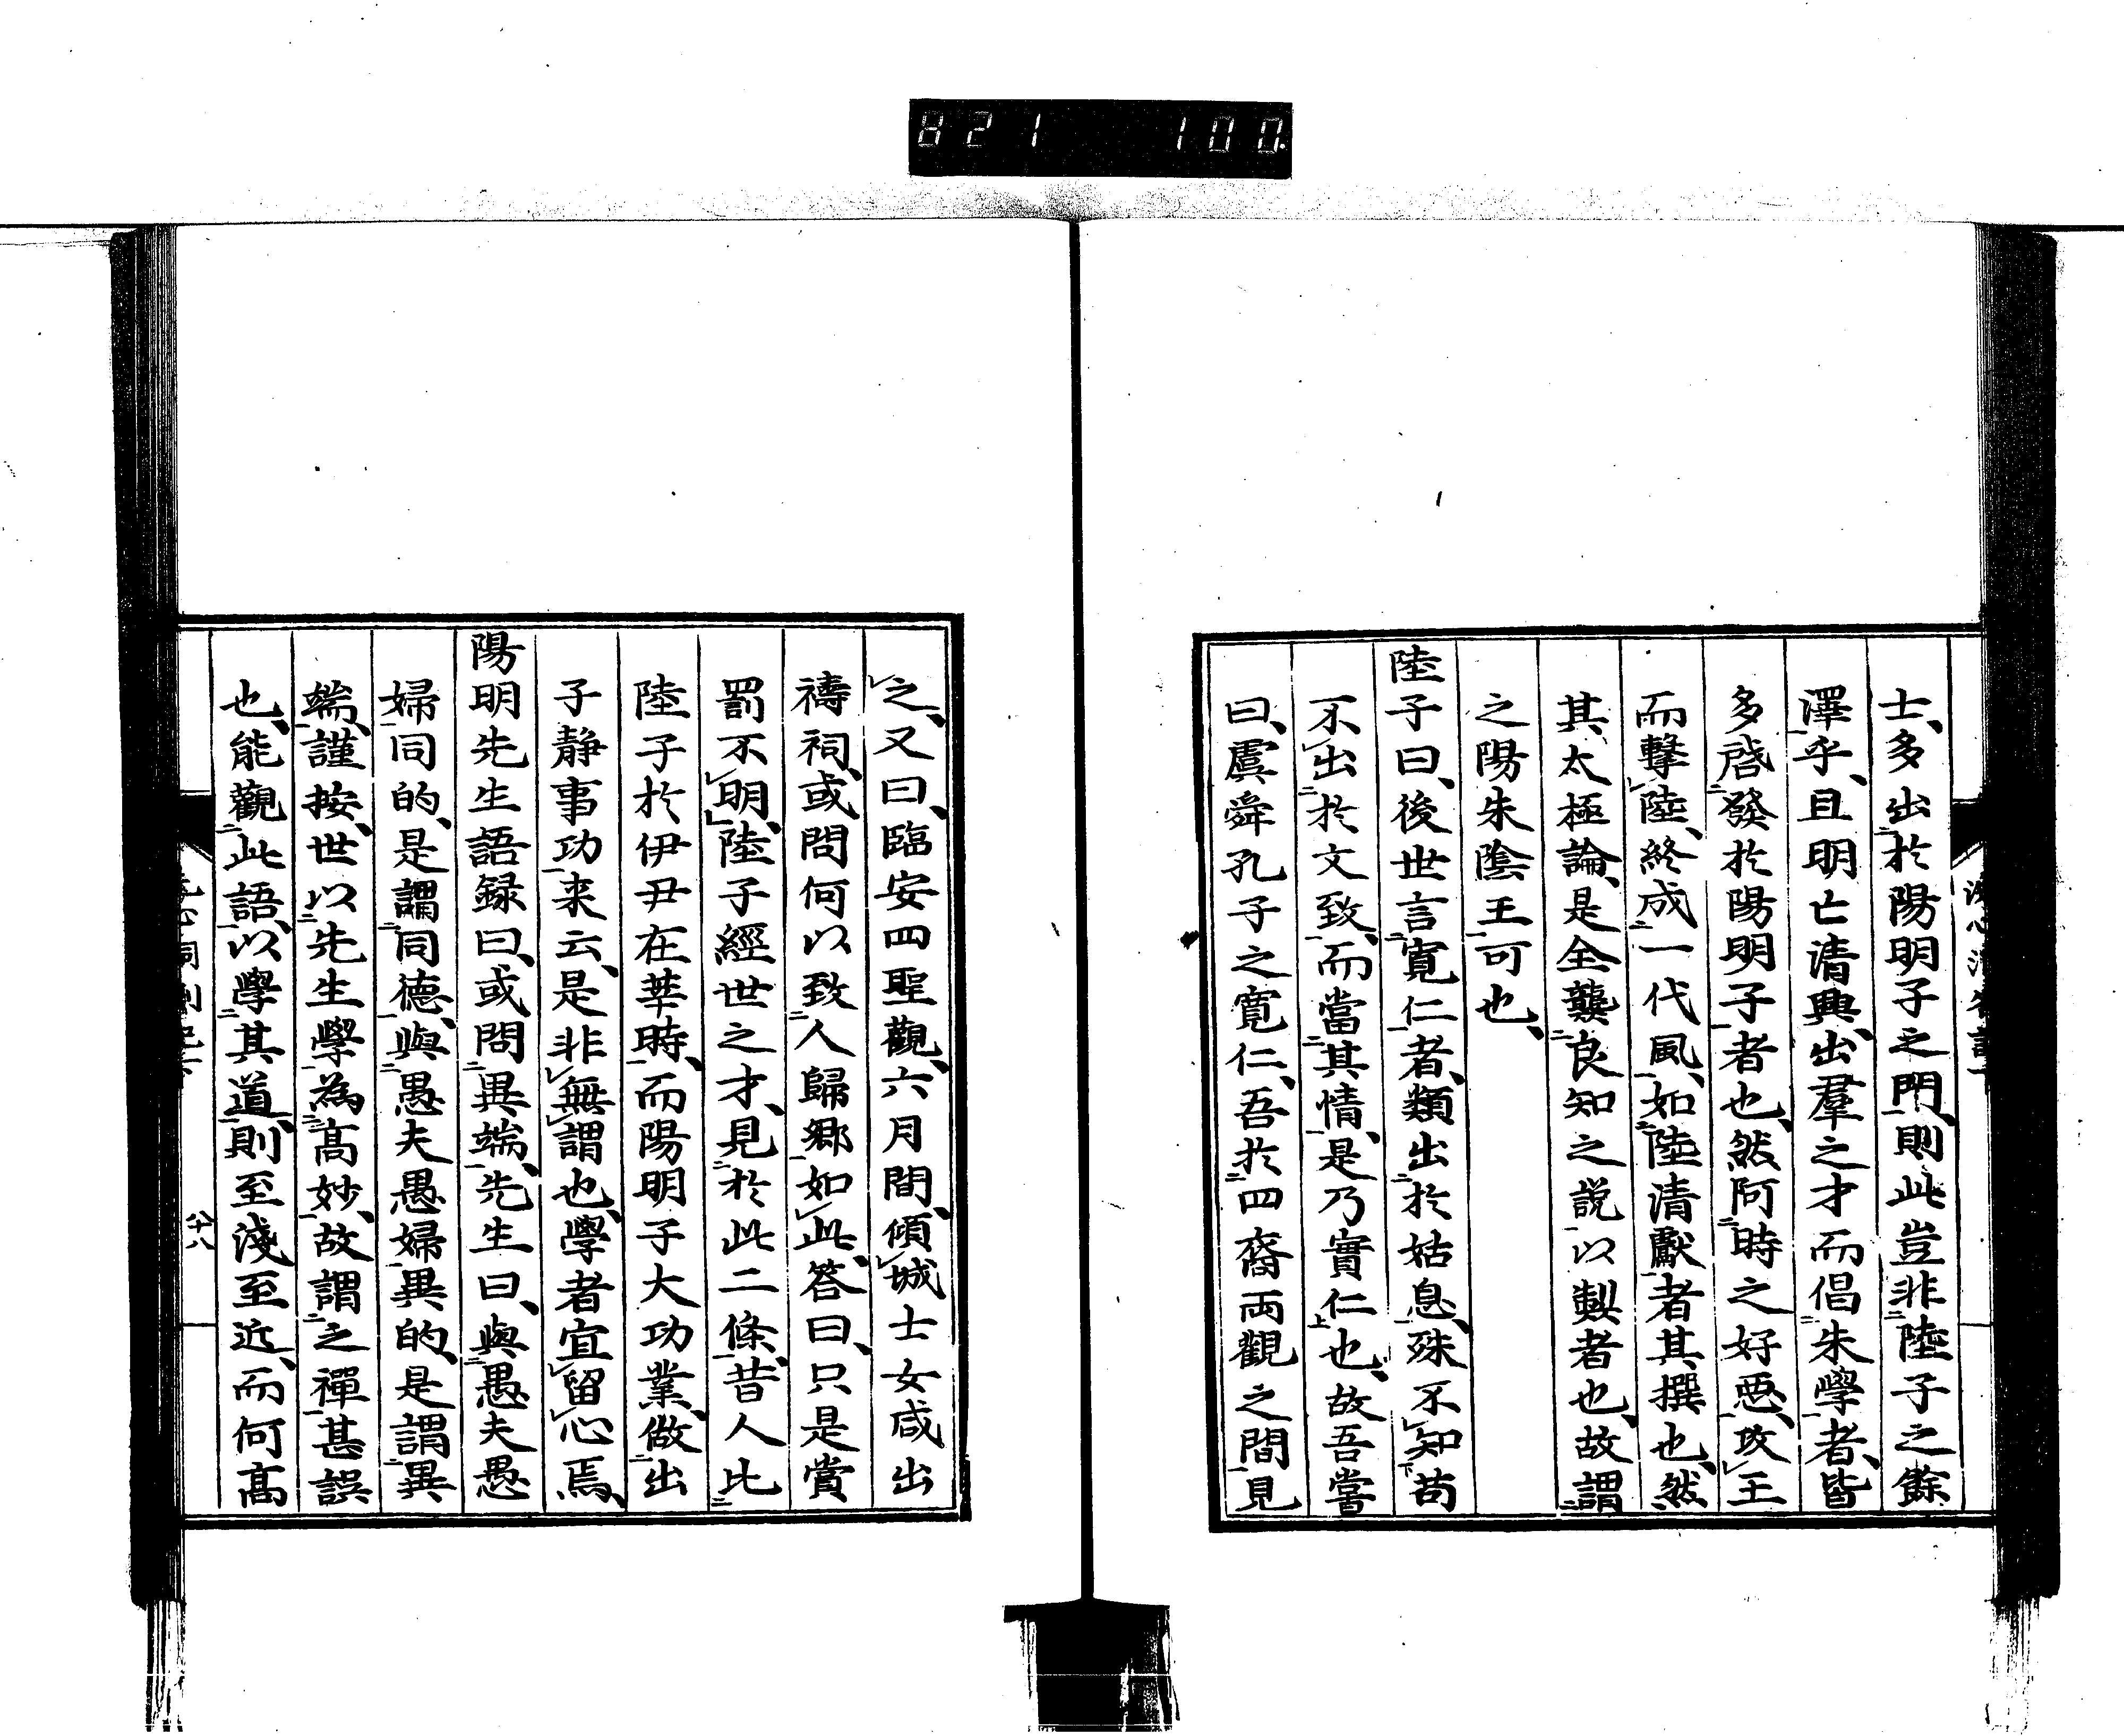 821 100.
士、多出於陽明子之門、則此豈非陸子之餘
澤乎、且明亡清興、出羣之才而倡朱學者、皆
多啓發於陽明子者也、然阿時之好惡、攻王
而擊陸、終成一代風、如陸清獻者其撰也、然
其太極論、是全襲良知之説以製者也、故謂
之陽朱陰王可也、
陸子曰、後世言寛仁者、類出於姑息、殊不知苟
不出於文致、而當其情、是乃實仁也、故吾嘗
曰、虞舜孔子之寛仁、吾於四裔兩觀之間見
之、又曰、臨安四聖觀、六月間、傾城士女咸出
禱祠、或問何以致人歸郷如此、答曰、只是賞
罰不明、陸子經世之才、見於此二條、昔人比
陸子於伊尹在莘時、而陽明子大功業、做出
子靜事功来云、是非無謂也、學者宜留心焉、
陽明先生語録曰、或問異端、先生曰、與愚夫愚
婦同的、是謂同德、與愚夫愚婦異的、是謂異
端、謹按、世以先生學為高妙、故謂之禪甚誤
也、能觀此語、以學其道、則至淺至近、而何高
洗心洞劄記下
六十八